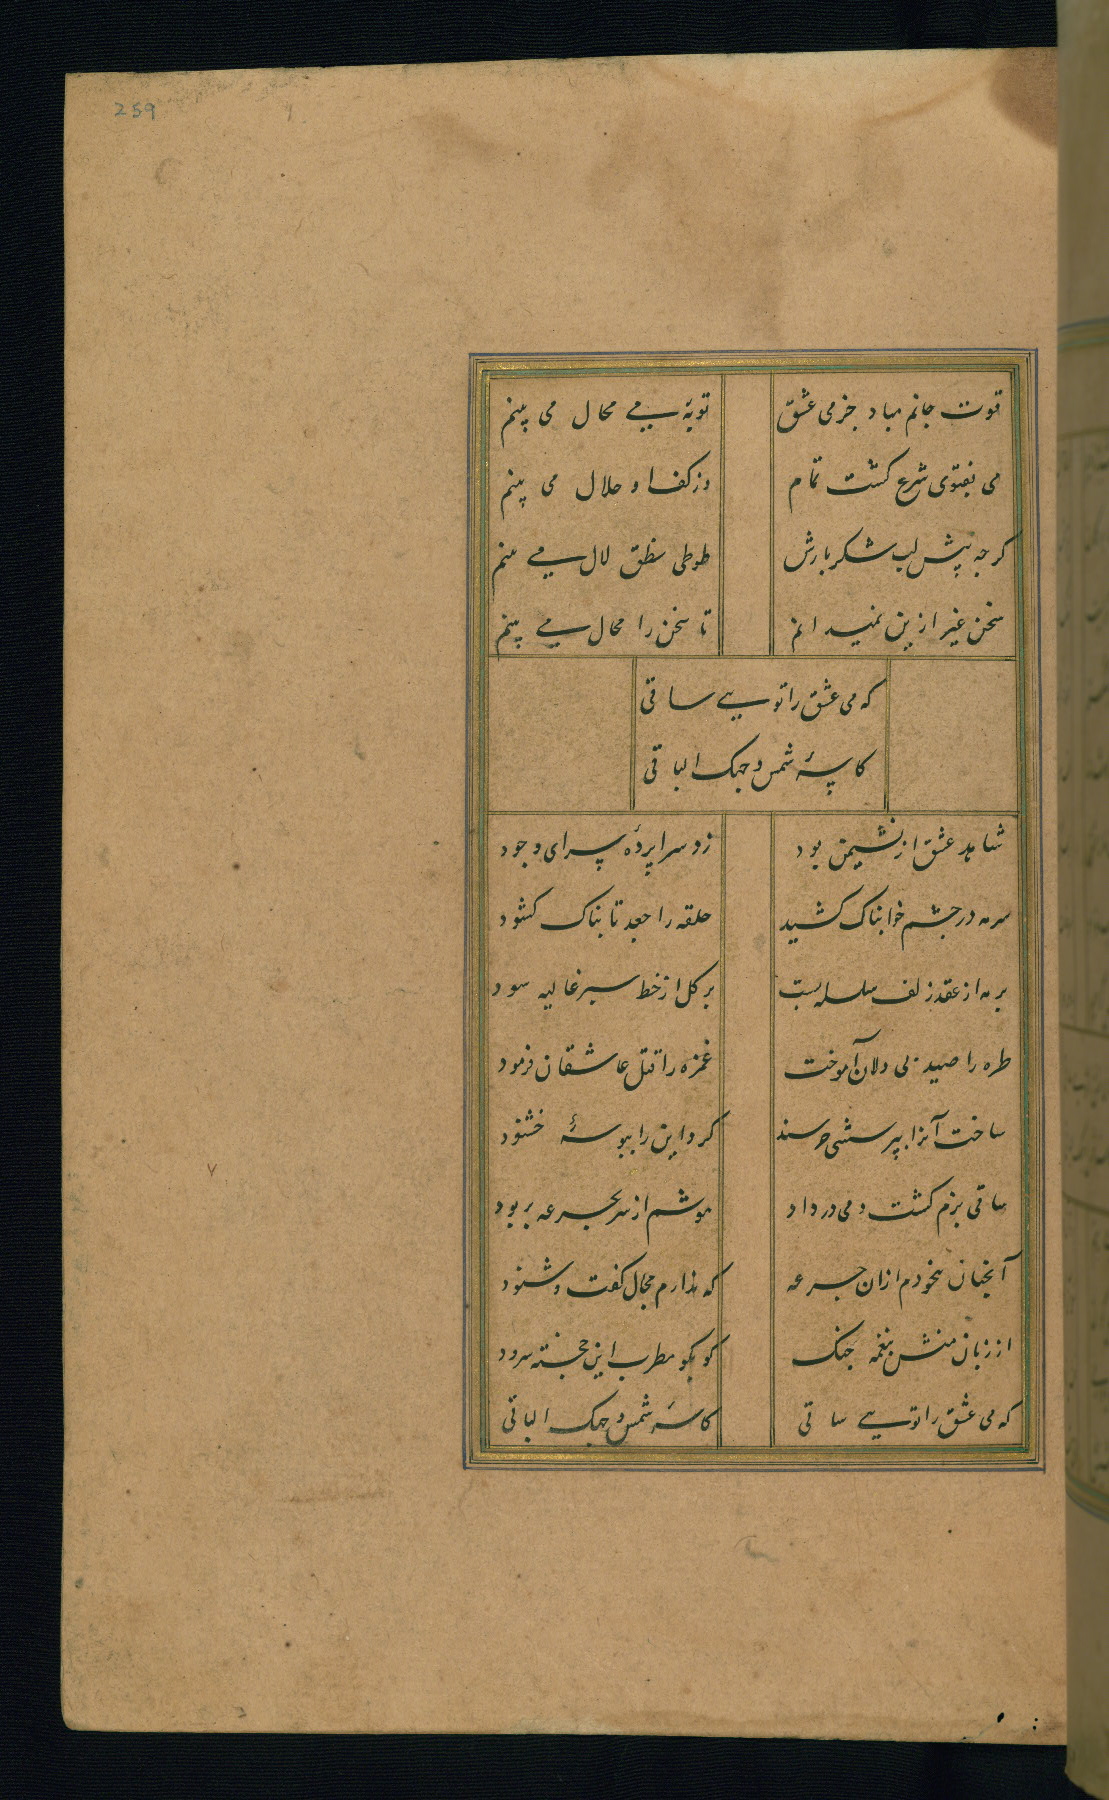 259
قوت جانم مباد جز می عشق توبهٔ می محال می بینم
می بفتوی شرع گشت تمام وز کف او حلال می بینم
کرجه پیش لب شکر بارش طوطی نطق لال می بینم
سخن غیر ازین نمیدانم تا سخن را محال می بینم
که می عشق را تویی ساقی
کاسهٔ شمس وجهک الباقی
شاهد عشق از نشیمن بود زد سراپردهٔ سرای وجود
سرمه در جشم خوابناک کشید حلقه را جعد تابناک کشود
بر مه از عقد زلف سلسله بست بر کل از خط سبز غالیه سود
طره را صید بی دلان آموخت غمزه را قتل عاشقان فرمود
ساخت آنرا بپرسشی خرسند کرد این را ببوسهٔ خشنود
ساقی بزم کشت و می در داد هوشم از سر بجرعه بربود
آنجنان بیخودم ازان جرعه که ندارم مجال کفت و شنود
از زبان منش بنغمه جنک کو بکو مطرب این خجسته سرود
که می عشق را تویی ساقی کاسهٔ شمس وجهک الباقی
٧